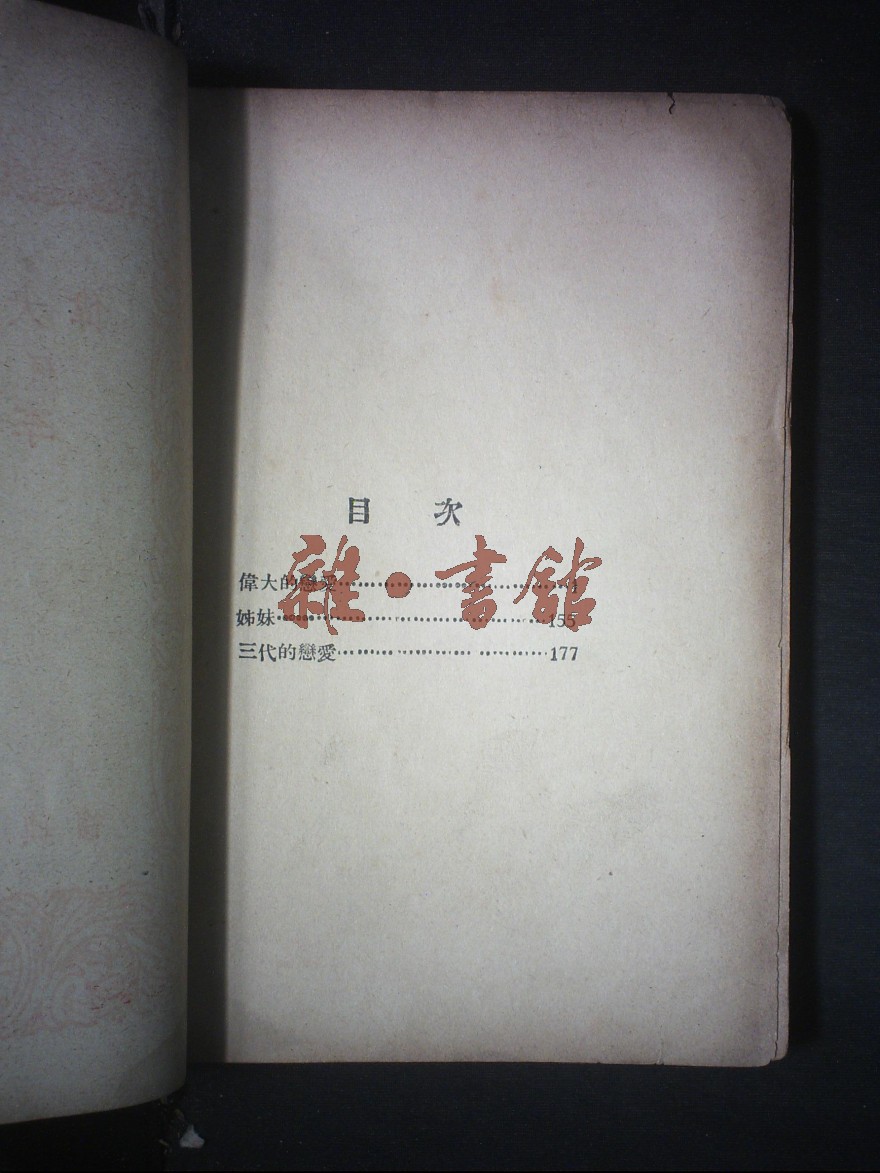 目 次
偉大的戀愛……………………………1
姊妹……………………………………155
三代的戀愛……………………………177
雜·書館